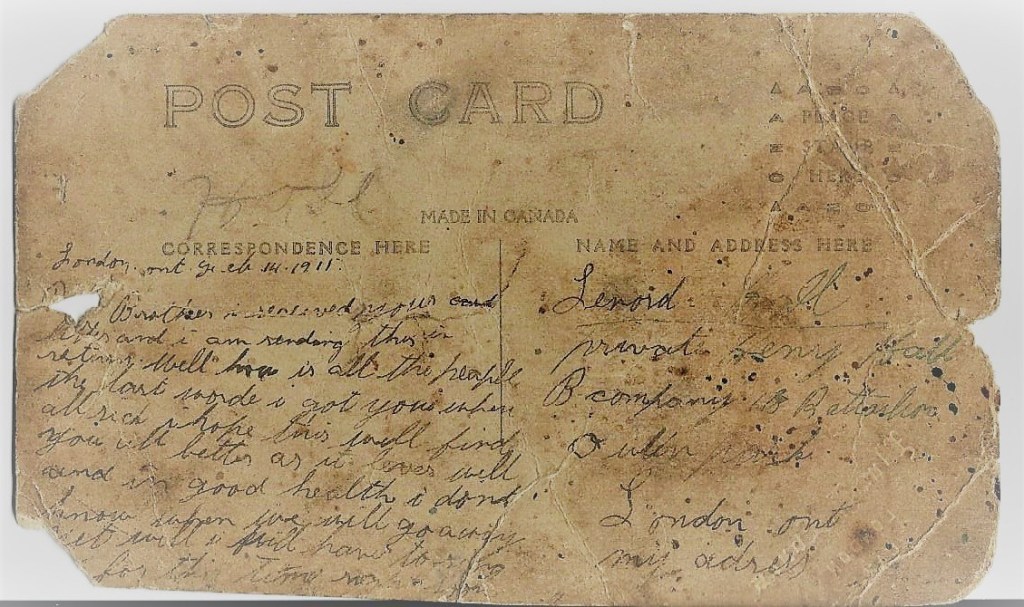 POST CARD
PLACE
STAMP
HERE
MADE IN CANADA
CORRESPONDENCE HERE
NAME AND ADDRESS HERE
London ont Feb 14. 1911.
Brother i received your card
and i am sending this in
return. Well how is all the people
the last worde i got you when
all sick i hope this will find
you all better as it leves well
and in good health i dont
know when we will go away
yet will i will have to
for this time
Lenoid
private Henry Hall
B company 18 Battalion
London ont
my adress